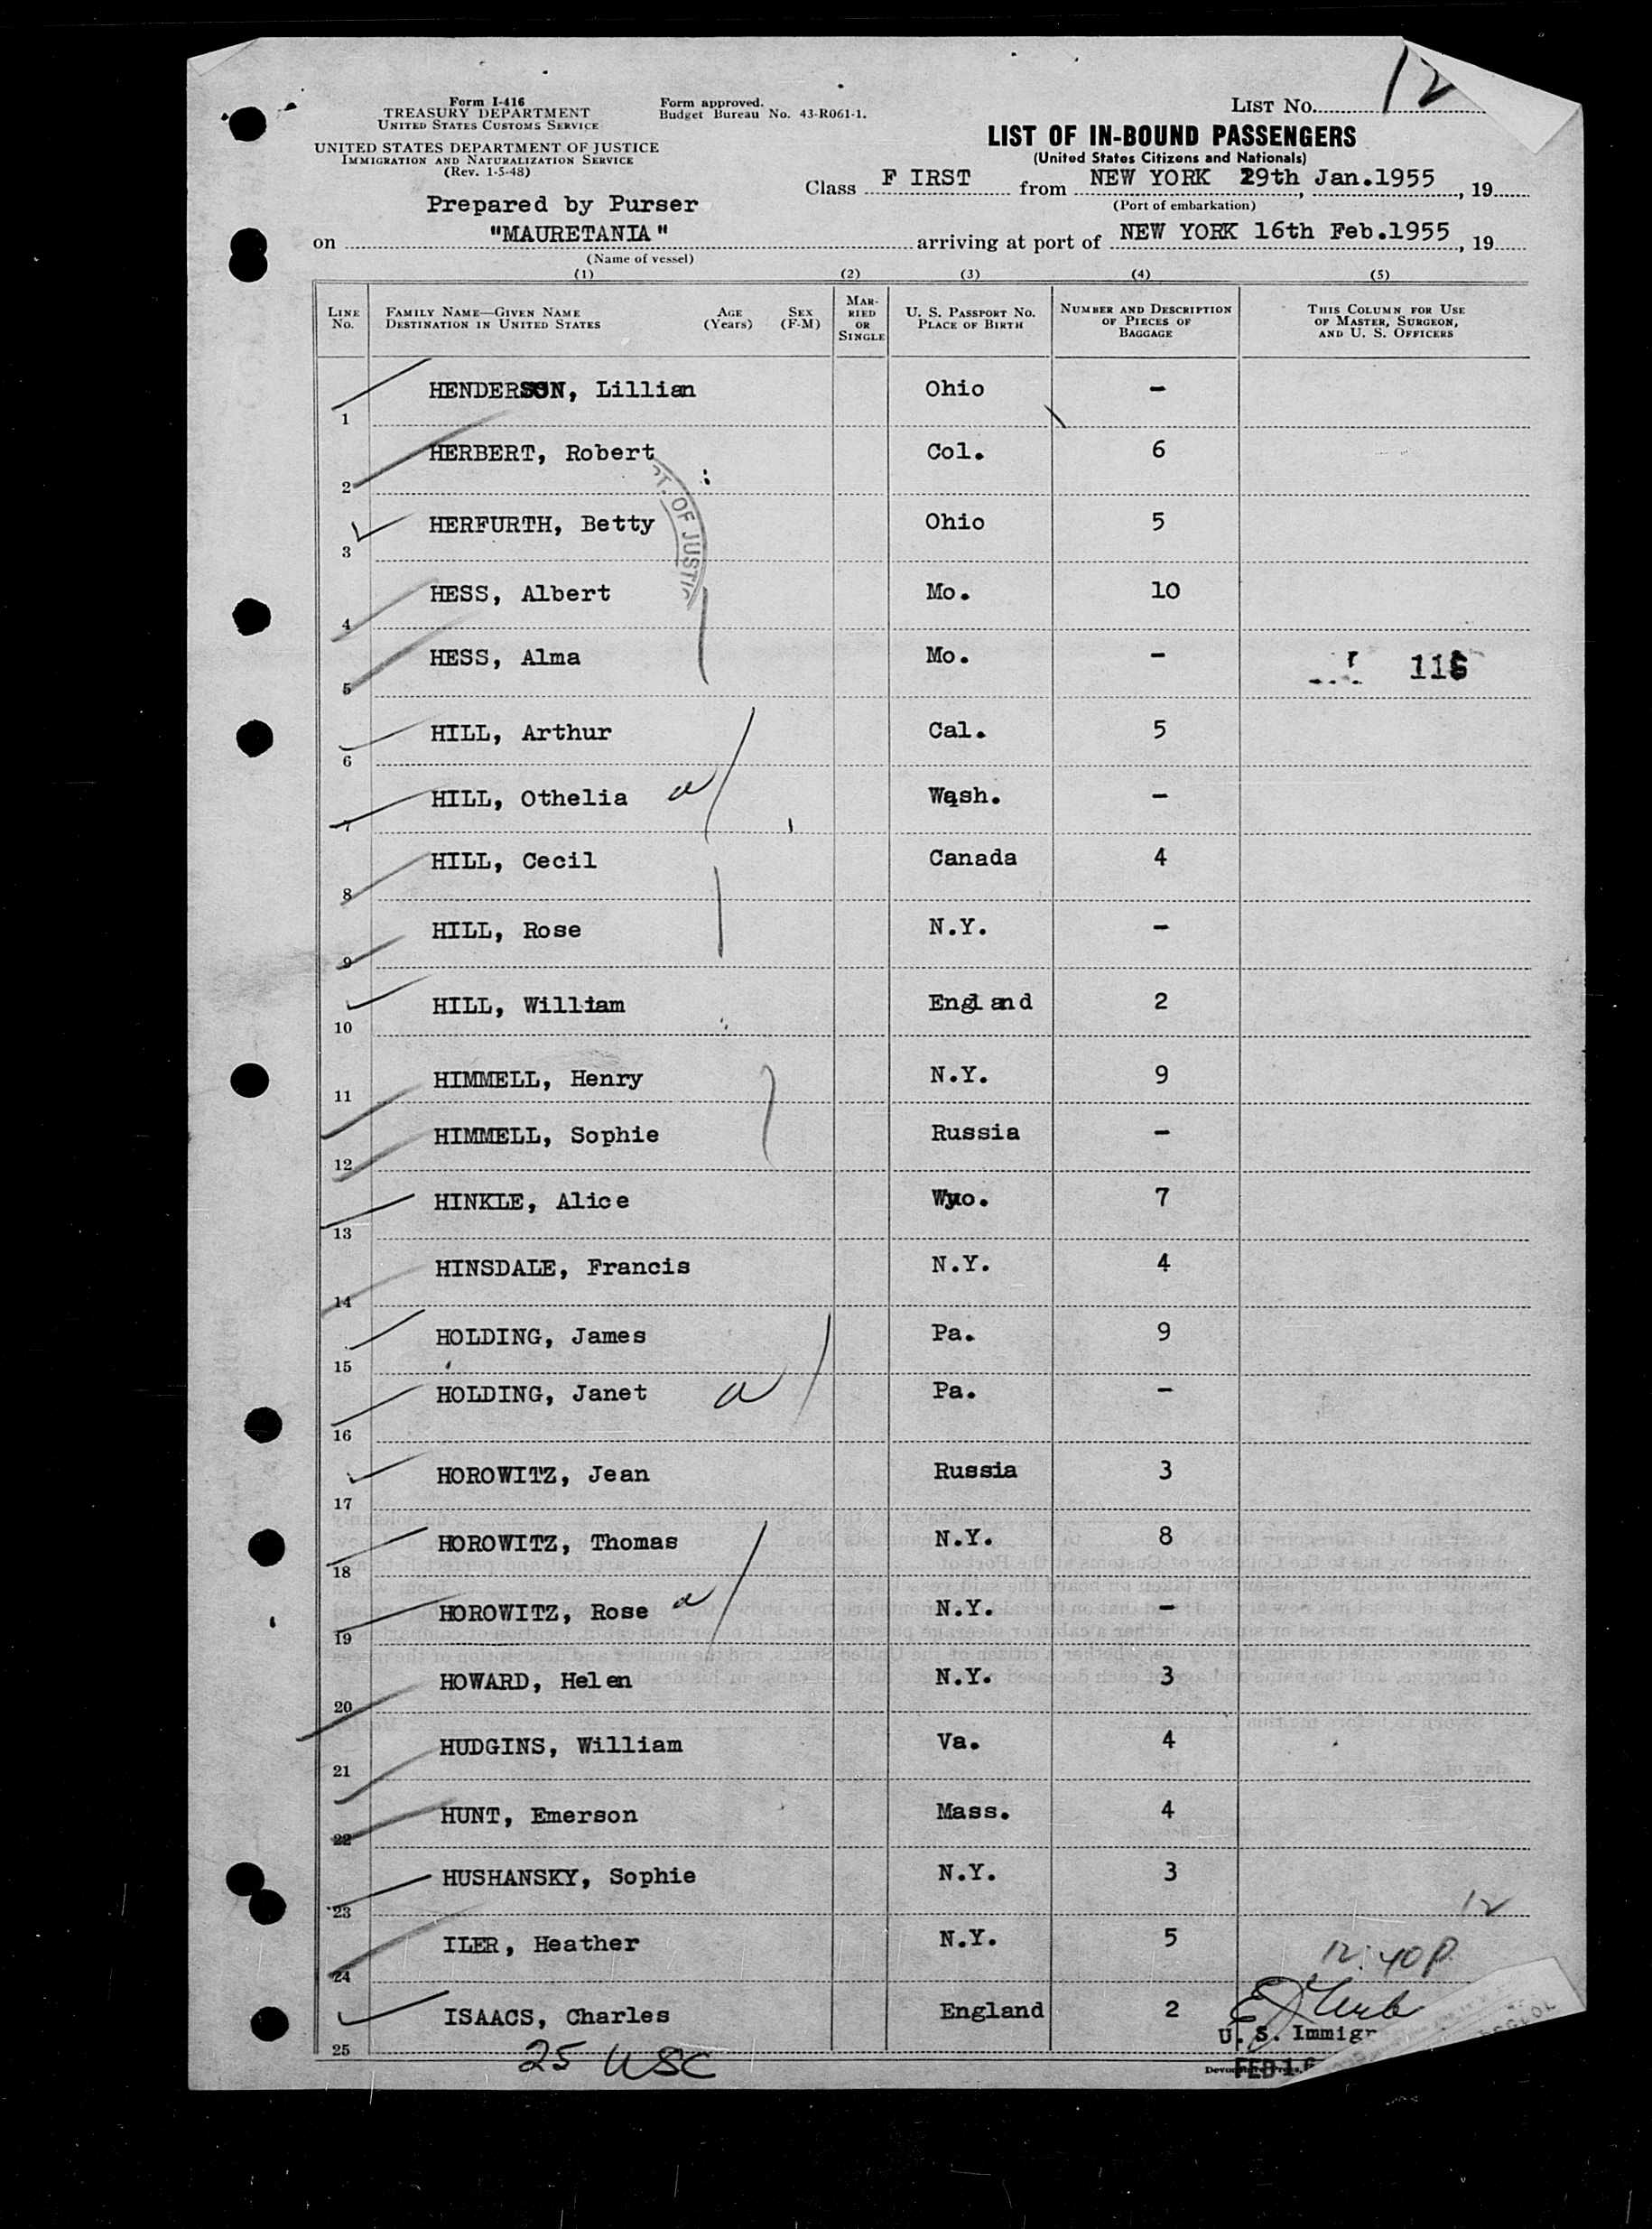 Form I-416
TREASURY DEPARTMENT
UNITED STATES CUSTOMS SERVICE
UNITED STATES DEPARTMENT OF JUSTICE
IMMIGRATION AND NATURALIZATION SERVICE
(Rev. 1-5-48)
Form approved.
Budget Bureau No. 43-R061-1.
LIST No. 12
LIST OF IN-BOUND PASSENGERS
(United States Citizens and Nationals)
Class F IRST from NEW YORK 29th Jan.1955, 19
(Port of embarkation)
Prepared by Purser
on "MAURETANIA" arriving at port of NEW YORK 16th Feb.1955, 19
(Name of vessel)
(1) (2) (3) (4) (5)
LINE No. FAMILY NAME—GIVEN NAME DESTINATION IN UNITED STATES AGE (Years) SEX (F-M) MARRIED OR SINGLE U. S. PASSPORT NO. PLACE OF BIRTH NUMBER AND DESCRIPTION OF PIECES OF BAGGAGE THIS COLUMN FOR USE OF MASTER, SURGEON, AND U. S. OFFICERS
1 HENDERSON, Lillian Ohio -
2 HERBERT, Robert Col. 6
T. OF JUSTIC
3 HERFURTH, Betty Ohio 5
4 HESS, Albert Mo. 10
5 HESS, Alma Mo. - 116
6 HILL, Arthur Cal. 5
7 HILL, Othelia Wash. -
8 HILL, Cecil Canada 4
9 HILL, Rose N.Y. -
10 HILL, William England 2
11 HIMMELL, Henry N.Y. 9
12 HIMMELL, Sophie Russia -
13 HINKLE, Alice Wyo. 7
14 HINSDALE, Francis N.Y. 4
15 HOLDING, James Pa. 9
16 HOLDING, Janet Pa. -
17 HOROWITZ, Jean Russia 3
18 HOROWITZ, Thomas N.Y. 8
19 HOROWITZ, Rose N.Y. -
20 HOWARD, Helen N.Y. 3
21 HUDGINS, William Va. 4
22 HUNT, Emerson Mass. 4
23 HUSHANSKY, Sophie N.Y. 3
12
24 ILER, Heather N.Y. 5
12:40 P
25 ISAACS, Charles England 2
U. S. Immigr
25 USC
FEB 16